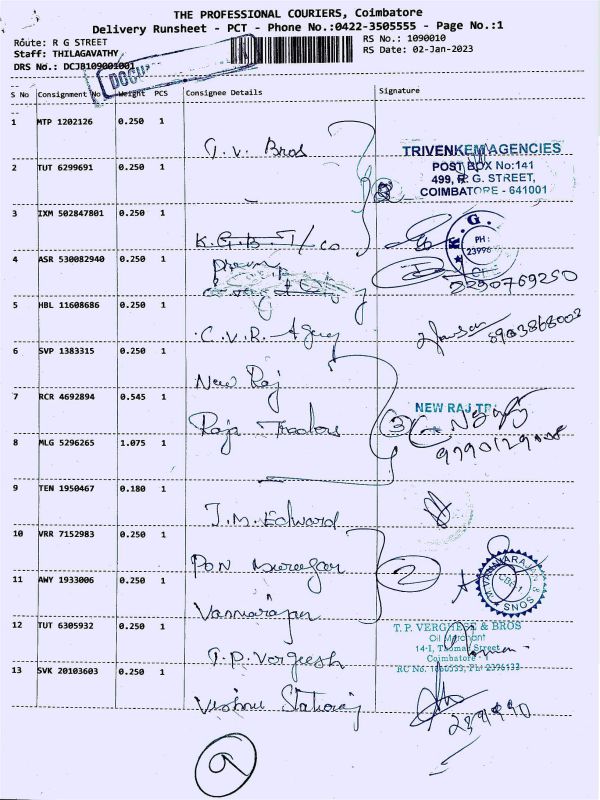 THE PROFESSIONAL COURIERS, Coimbatore
Delivery Runsheet - PCT - Phone No.:0422-3505555 - Page No.:1
Route: R G STREET RS No.: 1090010
Staff: THILAGAVATHY RS Date: 02-Jan-2023
DRS No.: DCJB109001001
S No Consignment No Weight PCS Consignee Details Signature
1 MTP 1202126 0.250 1
T. V. Bros
TRIVENKEM AGENCIES
POST BOX No:141
499, R. G. STREET,
COIMBATORE - 641001
2 TUT 6299691 0.250 1
3 IXM 502847801 0.250 1
K.G.B. T/co
K. G.
PH:
4 ASR 530082940 0.250 1
5 HBL 11608686 0.250 1
C.V.R. Agency
6 SVP 1383315 0.250 1
New Raj
NEW RAJ TR
7 RCR 4692894 0.545 1
Raja Traders
3
8 MLG 5296265 1.075 1
9 TEN 1950467 0.180 1
J.M. Edward
10 VRR 7152983 0.250 1
Pon Murugan
2
11 AWY 1933006 0.250 1
Vanniarajan
CBE-1
SONS
12 TUT 6305932 0.250 1
T.P. Vergeesh
T. P. VERGHESE & BROS
Oil Merchant
14-I, Thomas Street
Coimbatore - 1
13 SVK 20103603 0.250 1
Vishnu
9